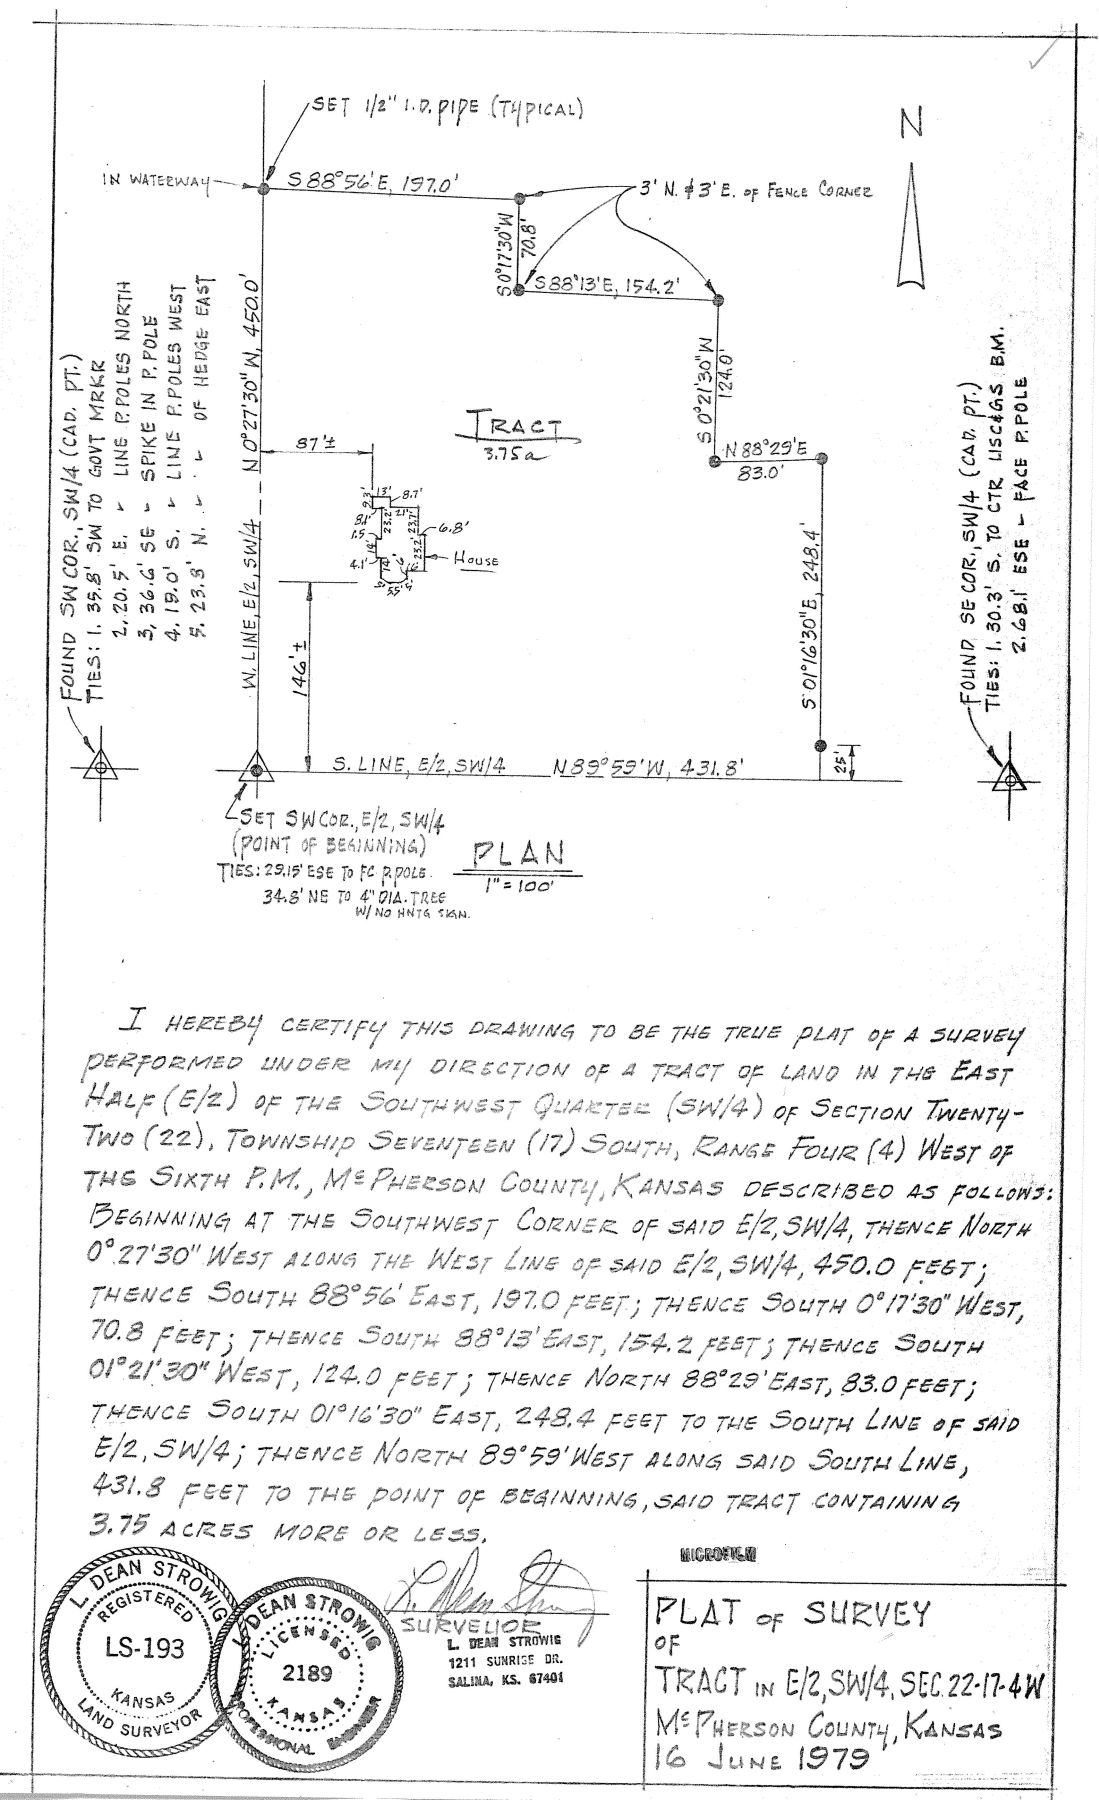 SET 1/2" I.D. PIPE (TYPICAL)
N
IN WATERWAY
S 88°56' E, 197.0'
3' N. & 3' E. OF FENCE CORNER
S 0°17'30" W
70.8'
S 88°13' E, 154.2'
S 0°21'30" W
124.0'
N 88°29' E
83.0'
S 01°16'30" E, 248.4'
25'
N 0°27'30" W, 450.0'
W. LINE, E/2, SW/4
TRACT
3.75a
87'±
13'
8.7'
9.3'
21'
8.1'
23.2'
23.7'
6.8'
1.5
14'
4.1'
14'
6'
23.2'
5.5'
HOUSE
146'±
S. LINE, E/2, SW/4 N 89°59' W, 431.8'
FOUND SW COR., SW/4 (CAD. PT.)
TIES: 1. 35.8' SW TO GOVT MRKR
2. 20.5' E. " LINE P.POLES NORTH
3. 36.6' SE " SPIKE IN P.POLE
4. 19.0' S. " LINE P.POLES WEST
5. 23.3' N. " " OF HEDGE EAST
FOUND SE COR., SW/4 (CAD. PT.)
TIES: 1. 30.3' S. TO CTR USC&GS B.M.
2. 68.1' ESE " FACE P.POLE
SET SW COR., E/2, SW/4
(POINT OF BEGINNING)
TIES: 29.15' ESE TO FC. P.POLE
34.8' NE TO 4" DIA. TREE
W/ NO HNTG SIGN.
PLAN
1" = 100'
I HEREBY CERTIFY THIS DRAWING TO BE THE TRUE PLAT OF A SURVEY
PERFORMED UNDER MY DIRECTION OF A TRACT OF LAND IN THE EAST
HALF (E/2) OF THE SOUTHWEST QUARTER (SW/4) OF SECTION TWENTY-
TWO (22), TOWNSHIP SEVENTEEN (17) SOUTH, RANGE FOUR (4) WEST OF
THE SIXTH P.M., McPHERSON COUNTY, KANSAS DESCRIBED AS FOLLOWS:
BEGINNING AT THE SOUTHWEST CORNER OF SAID E/2, SW/4, THENCE NORTH
0°27'30" WEST ALONG THE WEST LINE OF SAID E/2, SW/4, 450.0 FEET;
THENCE SOUTH 88°56' EAST, 197.0 FEET; THENCE SOUTH 0°17'30" WEST,
70.8 FEET; THENCE SOUTH 88°13' EAST, 154.2 FEET; THENCE SOUTH
01°21'30" WEST, 124.0 FEET; THENCE NORTH 88°29' EAST, 83.0 FEET;
THENCE SOUTH 01°16'30" EAST, 248.4 FEET TO THE SOUTH LINE OF SAID
E/2, SW/4; THENCE NORTH 89°59' WEST ALONG SAID SOUTH LINE,
431.8 FEET TO THE POINT OF BEGINNING, SAID TRACT CONTAINING
3.75 ACRES MORE OR LESS.
L. DEAN STROWIG
REGISTERED
LS-193
KANSAS
LAND SURVEYOR
L. DEAN STROWIG
LICENSED
2189
KANSAS
PROFESSIONAL ENGINEER
L. Dean Strowig
SURVEYOR
L. DEAN STROWIG
1211 SUNRISE DR.
SALINA, KS. 67401
MICROFILM
PLAT OF SURVEY
OF
TRACT IN E/2, SW/4, SEC. 22-17-4W
McPHERSON COUNTY, KANSAS
16 JUNE 1979